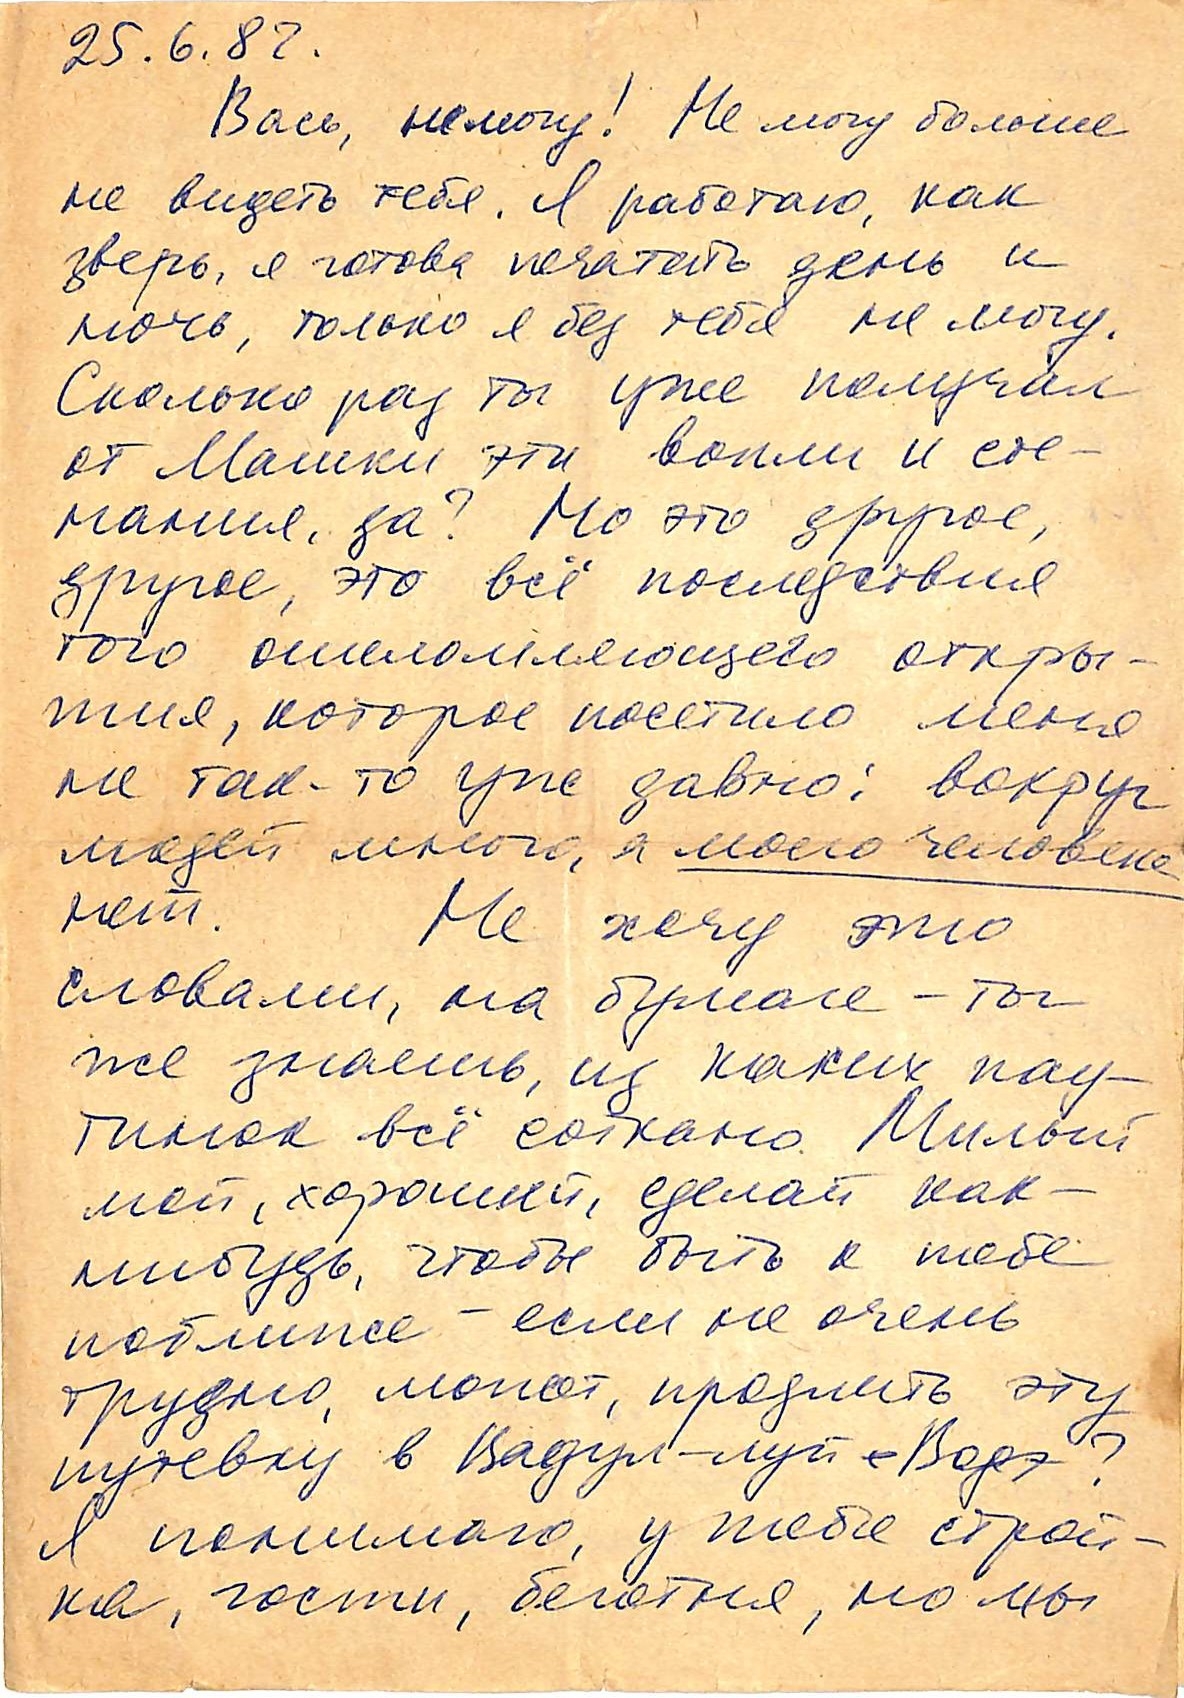 25.6.87.
Вась, немогу! Не могу больше
не видеть тебя. Я работаю, как
зверь, я готова печатать день и
ночь, только я без тебя не могу.
Сколько раз ты уже получал
от Машки эти вопли и сте-
нания, да? Но это другое,
другое, это всё последствия
того ошеломляющего откры-
тия, которое посетило меня
не так-то уже давно: вокруг
людей много, а моего человека
нет. Не хочу это
словами, на бумаге – ты
же знаешь, из каких пау-
тинок всё соткано. Милый
мой, хороший, сделай как-
нибудь, чтобы быть к тебе
поближе – если не очень
трудно, может, продлить эту
путевку в Вадул-луй-Водэ?
Я понимаю, у тебя строй-
ка, гости, беготня, но мы